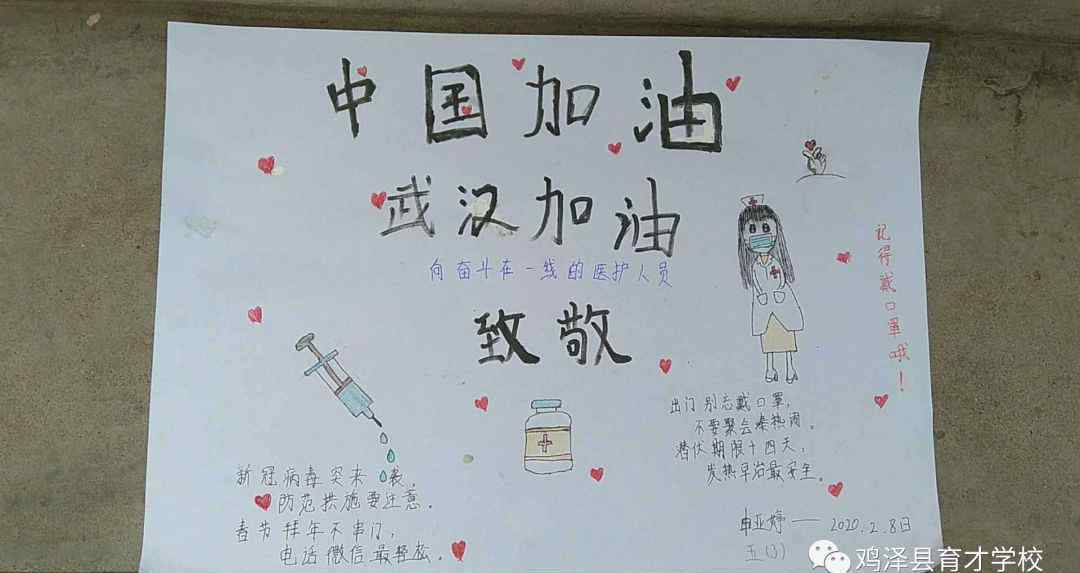 中国加油
武汉加油
向奋斗在一线的医护人员
致敬
记得戴口罩哦！
出门别忘戴口罩，
不要聚会凑热闹。
潜伏期限十四天，
发热早治最安全。
新冠病毒突来袭，
防范措施要注意。
春节拜年不串门，
电话微信最轻松。
申亚婷——2020.2.8日
五(3)
鸡泽县育才学校